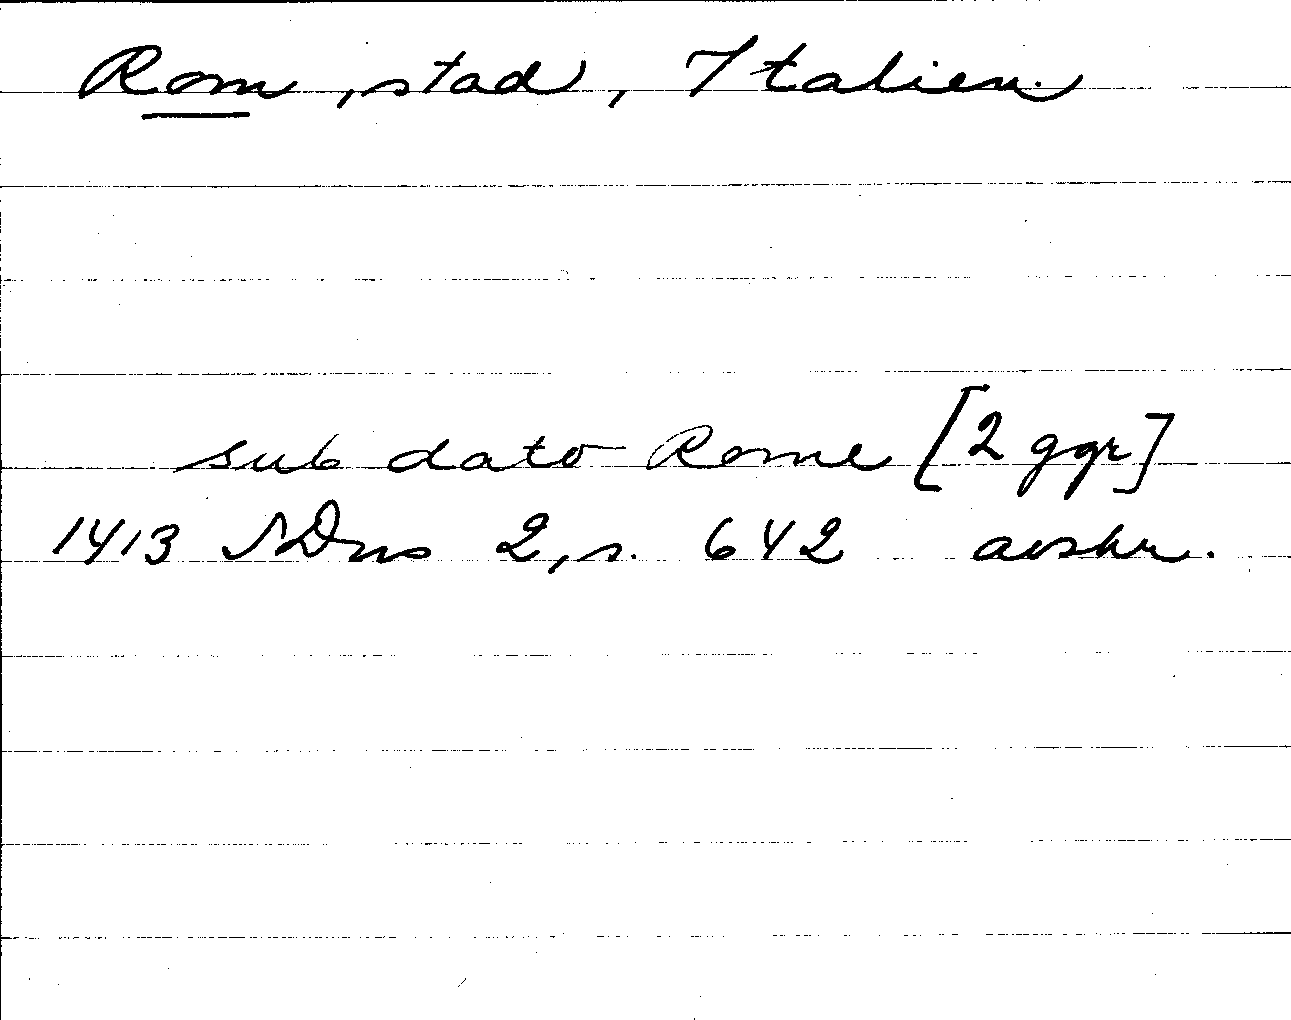 Rom, stad, Italien.
sub dato Rome [2 ggr]
1413 SDns 2, s. 642 avskr.